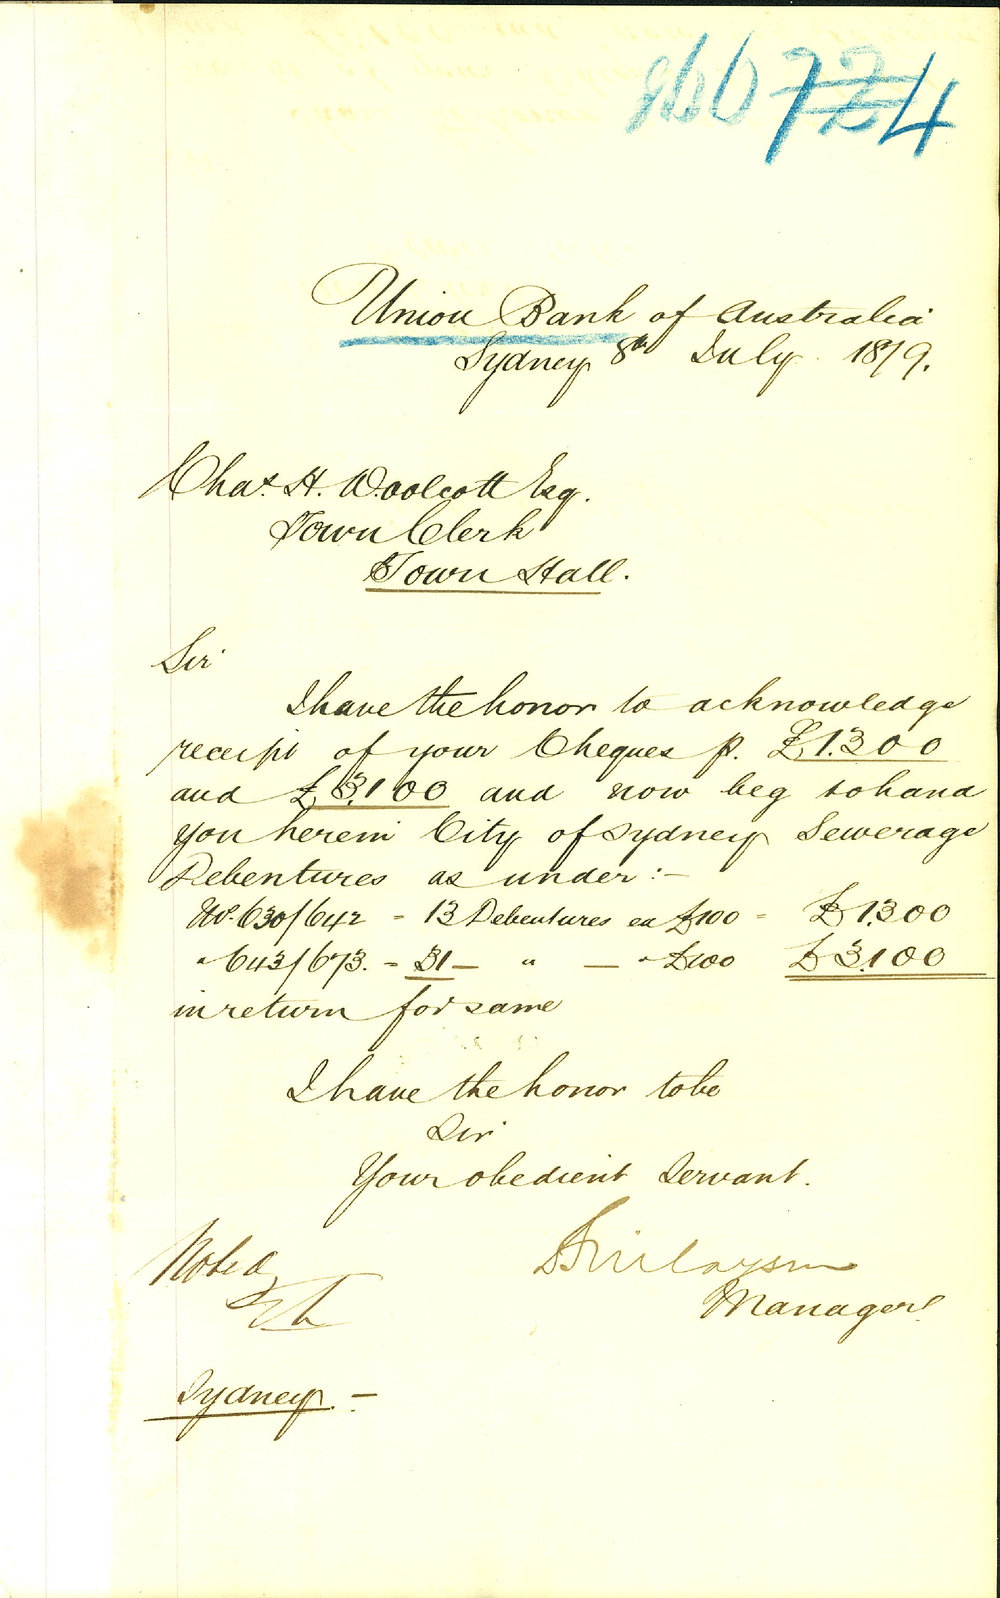 724
Union Bank of Australia
Sydney 8th July 1879.
Chas. H. Woolcott Esq.
Town Clerk
Town Hall.
Sir
I have the honor to acknowledge
receipt of your Cheques p. £1.300
and £3.100 and now beg to hand
you herein City of Sydney Sewerage
Debentures as under:-
No. 630/642 - 13 Debentures ea £100 = £1300
" 643/673. - 31 — " — " £100 £3.100
in return for same
I have the honor to be
Sir
Your obedient Servant.
Noted
Finlayson
Manager
Sydney. -